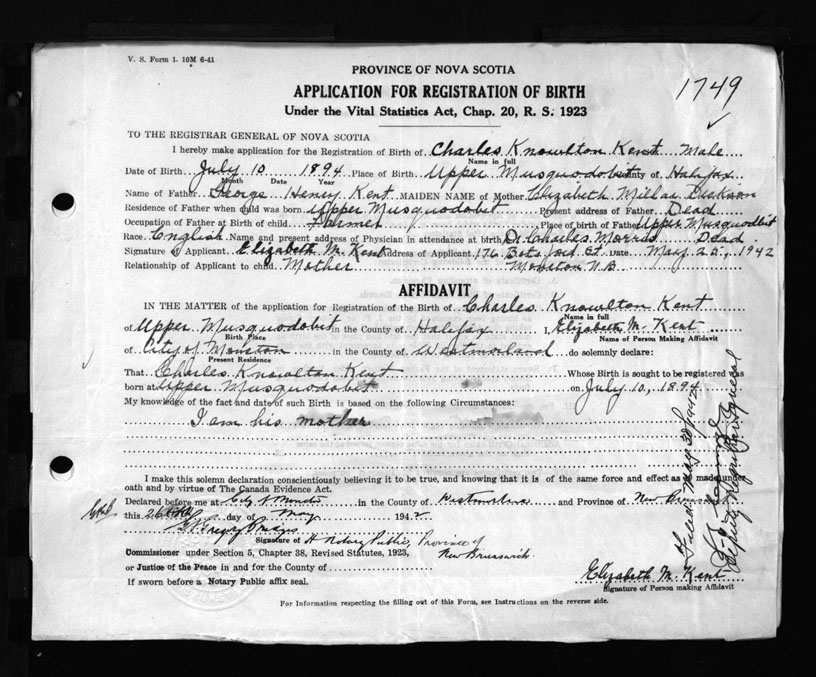 V. S. Form 1. 10M 6-41
PROVINCE OF NOVA SCOTIA
1749
APPLICATION FOR REGISTRATION OF BIRTH
Under the Vital Statistics Act, Chap. 20, R. S. 1923
TO THE REGISTRAR GENERAL OF NOVA SCOTIA
I hereby make application for the Registration of Birth of Charles Knowlton Kent Male
Name in full
Date of Birth July 10 1894 Place of Birth Upper Musquodobit County of Halifax
Month Date Year
Name of Father George Henry Kent MAIDEN NAME of Mother Elizabeth Millar
Residence of Father when child was born Upper Musquodobit Present address of Father Dead
Occupation of Father at Birth of child Farmer Place of birth of Father Upper Musquodobit
Race English Name and present address of Physician in attendance at birth Dr Charles Morris Dead
Signature of Applicant Elizabeth M. Kent Address of Applicant 176 St. Date May 25, 1942
Relationship of Applicant to child Mother Moncton N.B
AFFIDAVIT
IN THE MATTER of the application for Registration of the Birth of Charles Knowlton Kent
Name in full
of Upper Musquodobit in the County of Halifax I, Elizabeth M. Kent
Birth Place Name of Person Making Affidavit
of City of Moncton in the County of Westmorland do solemnly declare:
Present Residence
That Charles Knowlton Kent Whose Birth is sought to be registered was
born at Upper Musquodobit on July 10, 1894
My knowledge of the fact and date of such Birth is based on the following Circumstances:
I am his mother
I make this solemn declaration conscientiously believing it to be true, and knowing that it is of the same force and effect as if made under
oath and by virtue of The Canada Evidence Act.
Declared before me at City of Moncton in the County of Westmorland and Province of New Brunswick
this 26th day of May 1942
Signature of A Notary Public, Province of
New Brunswick.
Commissioner under Section 5, Chapter 38, Revised Statutes, 1923,
or Justice of the Peace in and for the County of
Elizabeth M. Kent
If sworn before a Notary Public affix seal.
Signature of Person making Affidavit
For Information respecting the filling out of this Form, see Instructions on the reverse side.
Filed May 30 1942
Deputy Registrar General